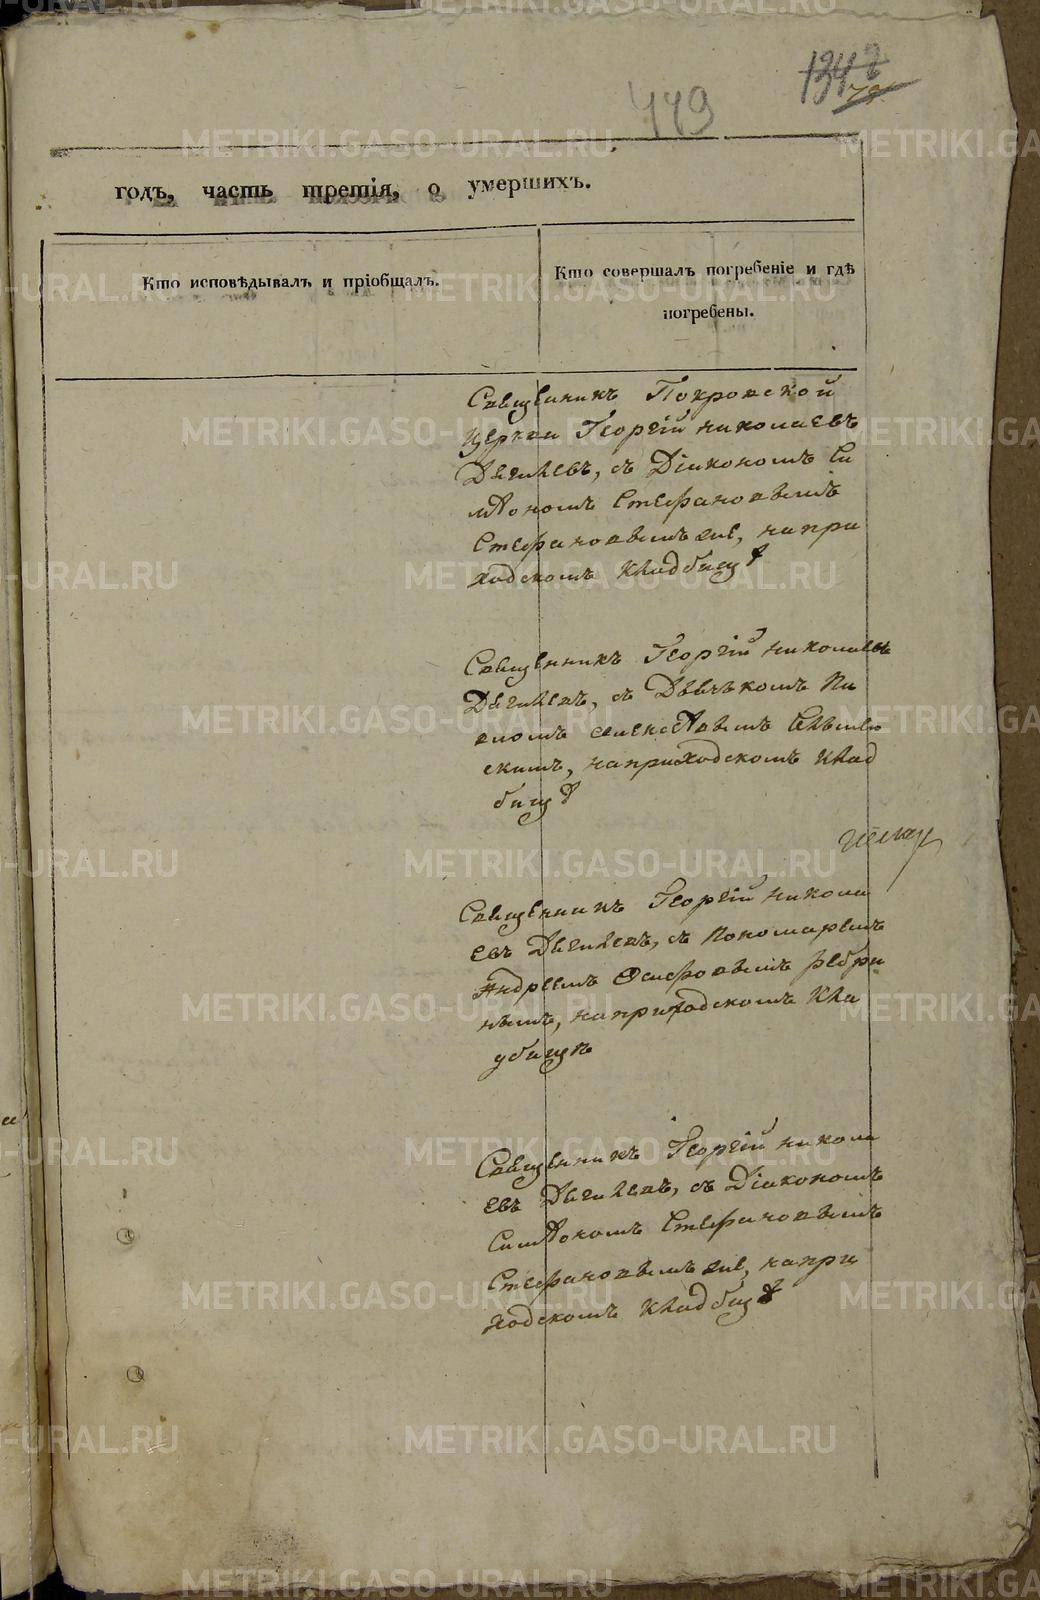 449
1342
78
годъ, часть третія, о умершихъ.
Кто исповѣдывалъ и пріобщалъ.
Кто совершалъ погребеніе и гдѣ
погребены.
Священникъ Покровской
церкви Георгій Николаевъ
Дягилевъ, съ Діакономъ Си
мѧономъ Стефановымъ
Стефановымъ же, на при
ходскомъ кладбищѣ
Священникъ Георгій Николаевъ
Дягилевъ, съ Дьячкомъ Па
вломъ
скимъ, на приходскомъ клад
бищѣ
Священникъ Георгій Никола
евъ Дягилевъ, съ Пономаремъ
Андреемъ Осиповымъ Ребри
нымъ, на приходскомъ кла
дбищѣ
Священникъ Георгій Никола
евъ Дягилевъ, съ Діакономъ
Симѧономъ Стефановымъ
Стефановымъ же, на при
ходскомъ кладбищѣ
METRIKI.GASO-URAL.RU